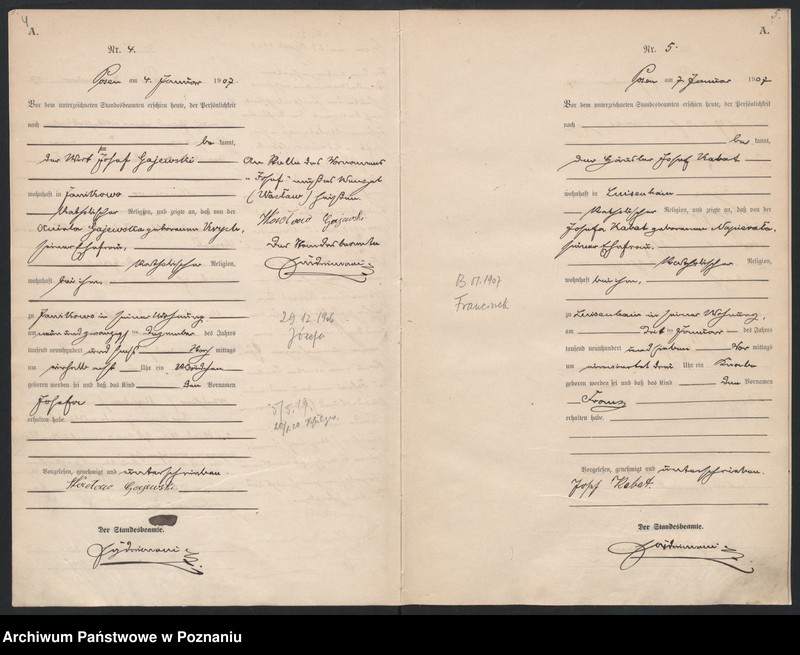 4
A.
Nr. 4.
Posen am 4. Januar 1907
Vor dem unterzeichneten Standesbeamten erschien heute, der Persönlichkeit
nach
be kannt,
der Wirt Josef Gajewski
wohnhaft in Janikowo
katholischer Religion, und zeigte an, daß von der
Gajewska geborenen
seiner Ehefrau,
katholischer Religion,
wohnhaft bei ihm,
zu Janikowo in seiner Wohnung,
am neun und zwanzigsten Dezember des Jahres
tausend neunhundert und sechs Vor mittags
um acht Uhr ein Mädchen
geboren worden sei und daß das Kind den Vornamen
Josefa
erhalten habe.
Vorgelesen, genehmigt und unterschrieben.
Gajewski
Der Standesbeamte.
An Stelle des Vornamens
"Josef" muß es Wenzel
(Wacław) heißen.
Gajewski
Der Standesbeamte
29 12. 1906
Józefa
5.
A.
Nr. 5.
Posen am 7. Januar 1907
Vor dem unterzeichneten Standesbeamten erschien heute, der Persönlichkeit
nach
be kannt,
der Häusler Josef Kabat
wohnhaft in Luisenhain
katholischer Religion, und zeigte an, daß von der
Josefa Kabat geborenen Napierala,
seiner Ehefrau,
katholischer Religion,
wohnhaft bei ihm,
zu Luisenhain in seiner Wohnung,
am drit ten Januar des Jahres
tausend neunhundert und sieben Vor mittags
um drei Uhr ein Knabe
geboren worden sei und daß das Kind den Vornamen
Franz
erhalten habe.
Vorgelesen, genehmigt und unterschrieben.
Josef Kabat.
Der Standesbeamte.
1907
Franciszek
Archiwum Państwowe w Poznaniu